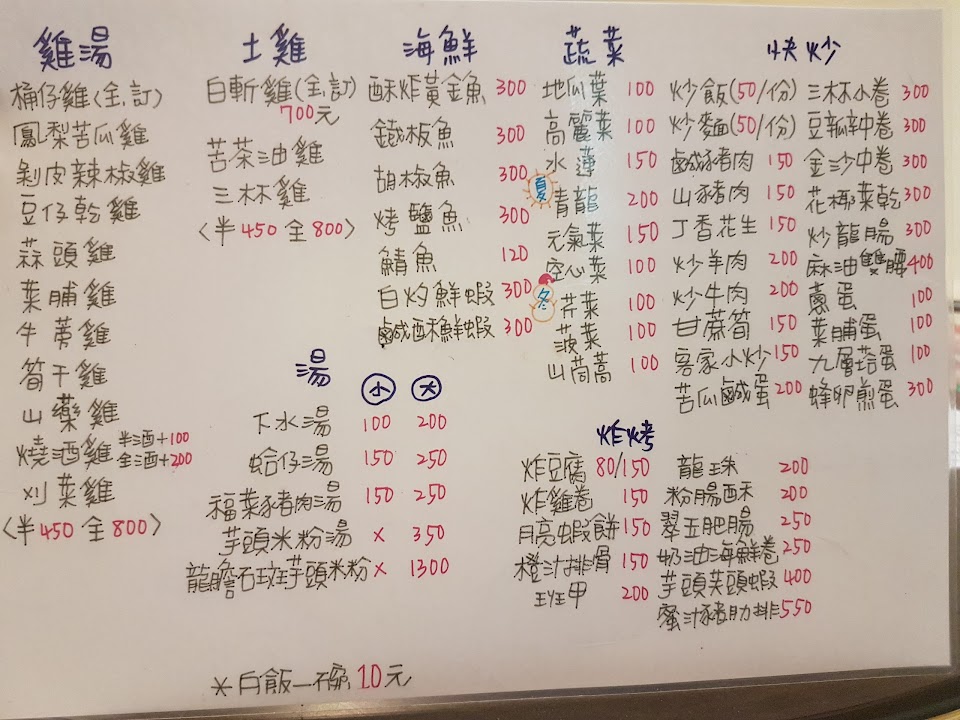 雞湯
桶仔雞(全.訂)
鳳梨苦瓜雞
剝皮辣椒雞
豆仔乾雞
蒜頭雞
菜脯雞
牛蒡雞
筍干雞
山藥雞
燒酒雞 半酒+100 全酒+200
刈菜雞
〈半450 全800〉
土雞
白斬雞(全.訂)
700元
苦茶油雞
三杯雞
〈半450 全800〉
海鮮
酥炸黃金魚 300
鐵板魚 300
胡椒魚 300
烤鹽魚 300
鯖魚 120
白灼鮮蝦 300
鹹酥鮮蝦 300
湯 小 大
下水湯 100 200
蛤仔湯 150 250
福菜豬肉湯 150 250
芋頭米粉湯 × 350
龍膽石斑芋頭米粉 × 1300
蔬菜
地瓜葉 100
高麗菜 100
水蓮 150
夏 青龍 200
元氣菜 150
空心菜 100
冬 芹菜 100
菠菜 100
山茼蒿 100
快炒
炒飯(50/份)
炒麵(50/份)
鹹豬肉 150
山豬肉 150
丁香花生 150
炒羊肉 200
炒牛肉 200
甘蔗筍 150
客家小炒 150
苦瓜鹹蛋 200
三杯小卷 300
豆瓣中卷 300
金沙中卷 300
花椰菜乾 300
炒龍腸 300
麻油雙腰 400
蔥蛋 100
菜脯蛋 100
九層塔蛋 100
蜂卵煎蛋 300
炸烤
炸豆腐 80/150
炸雞卷 150
月亮蝦餅 150
橙汁排骨 150
斑甲 200
龍珠 200
粉腸酥 200
翠玉肥腸 250
奶油海鮮卷 250
芋頭芙頭蝦 400
蜜汁豬肋排 550
*白飯一碗10元